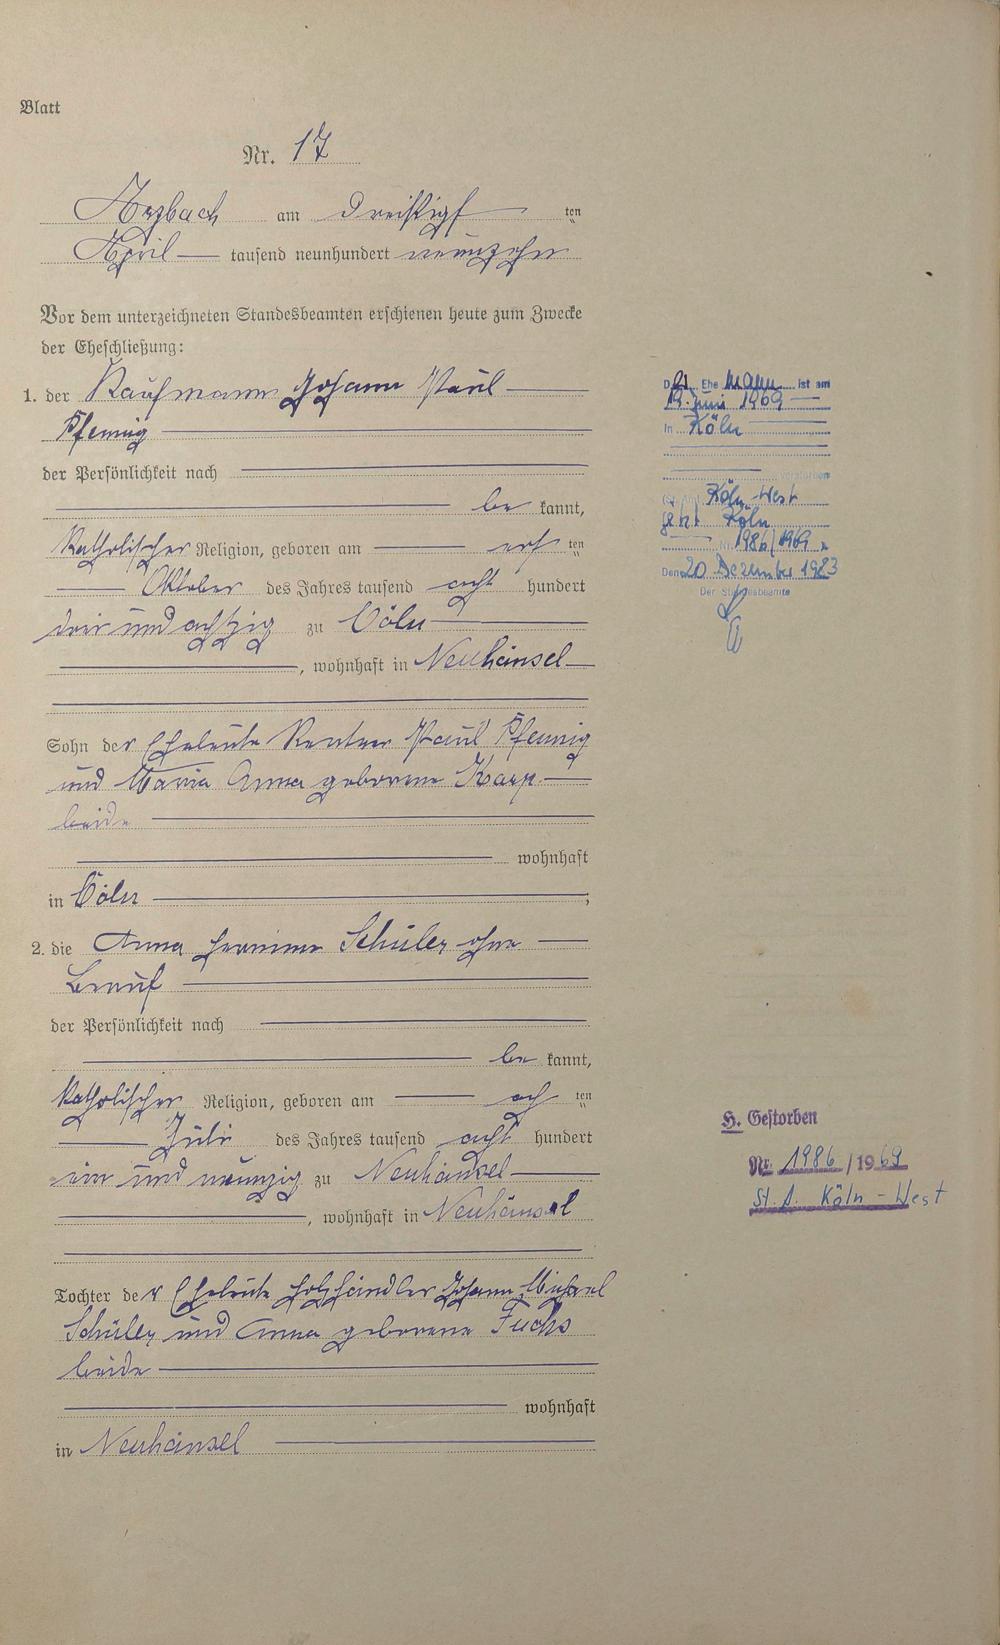 Blatt
Nr. 17
Arzbach am dreißigsten
April tausend neunhundert neunzehn
Vor dem unterzeichneten Standesbeamten erschienen heute zum Zwecke
der Eheschließung:
1. der Kaufmann Johann Paul
Pfennig
der Persönlichkeit nach
be kannt,
katholischer Religion, geboren am ersten
Oktober des Jahres tausend acht hundert
drei und achtzig zu Cöln
, wohnhaft in Neuhäusel
Sohn der Eheleute Rentner Paul Pfennig
und Maria Anna geborene Karp
beide
wohnhaft
in Cöln ;
2. die Anna Hermine Schüler ohne
Beruf
der Persönlichkeit nach
be kannt,
katholischer Religion, geboren am achten
Juli des Jahres tausend acht hundert
ein und neunzig zu Neuhäusel
, wohnhaft in Neuhäusel
Tochter der Eheleute Holzhändler Johann Michael
Schüler und Anna geborene Fuchs
beide
wohnhaft
in Neuhäusel
Der Ehe mann ist am
19. Juni 1969
in Köln
verstorben
Köln-West
jetzt Köln
Nr. 1986/1969
Den 20 Dezember 1983
Der Standesbeamte
H. Gestorben
Nr. 1986/1969
St. A. Köln-West